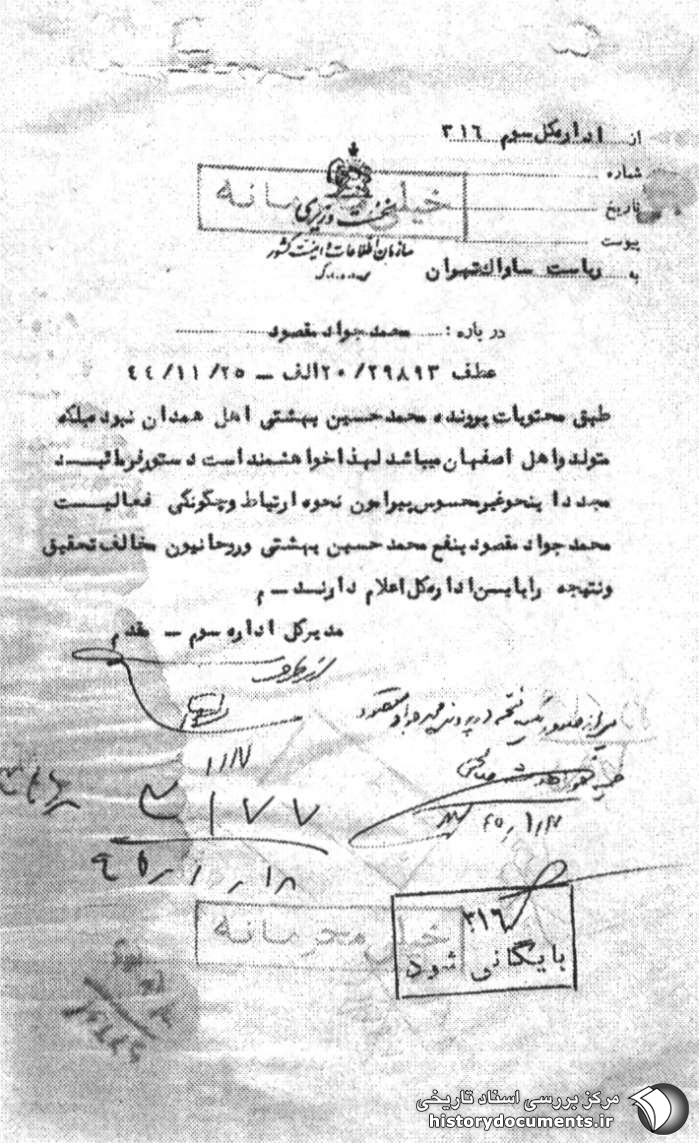 از اداره کل سوم ۳۱۶
شماره
تاریخ
پیوست
خیلی محرمانه
نخست وزیری
سازمان اطلاعات و امنیت کشور
س.ا.و.ا.ک
به ریاست ساواک تهران
در باره : محمد جواد مقصود
عطف ۲۰/۲۹۸۹۳الف ــ ۴۴/۱۱/۲۵
طبق محتویات پرونده محمد حسین بهشتی اهل همدان نبوده بلکه
متولد و اهل اصفهان میباشد لهذا خواهشمند است دستور فرمائیـــد
مجددا بنحو غیر محسوس پیرامون نحوه ارتباط و چگونگی فعالیـــت
محمد جواد مقصود بنفع محمد حسین بهشتی و روحانیون مخالف تحقیق
و نتیجه را باین اداره کل اعلام دارنـــد ــ م
مدیر کل اداره سوم ــ مقدم
۱/۱۷
۴۵/۱/۱۷
۳۱۷۷
۴۵/۱/۱۸
خیلی محرمانه
۳۱۶
بایگانی شود
مرکز بررسی اسناد تاریخی
historydocuments.ir